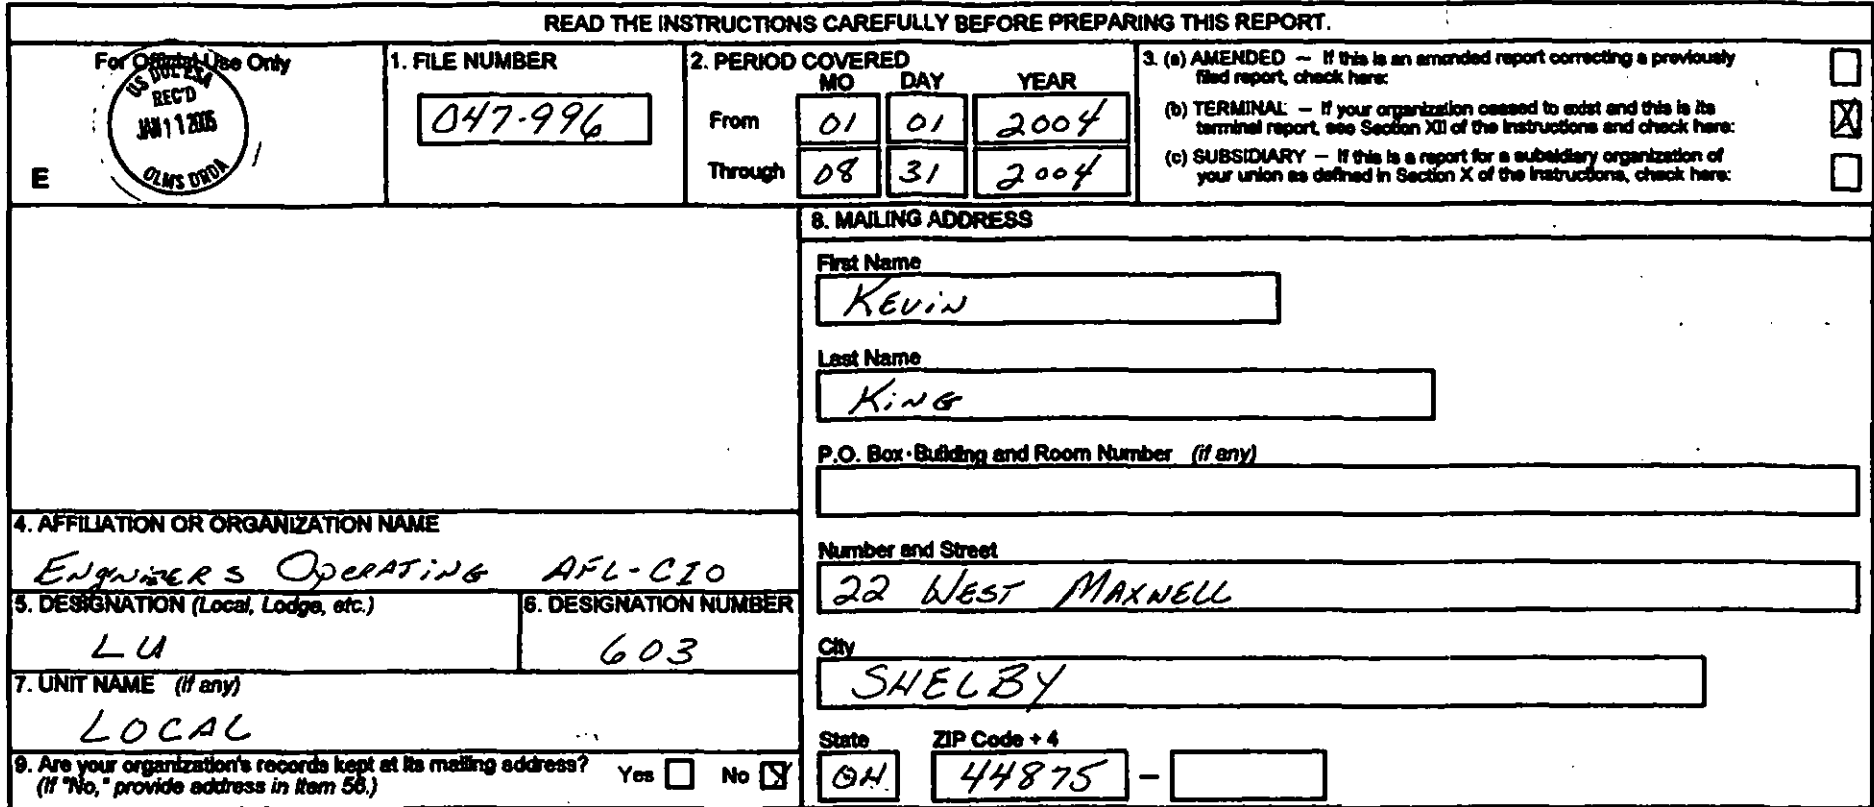 READ THE INSTRUCTIONS CAREFULLY BEFORE PREPARING THIS REPORT.
For Official Use Only
US DOL ESA
REC'D
JAN 11 2005
OLMS DRDA
E
1. FILE NUMBER
047-996
2. PERIOD COVERED
MO DAY YEAR
From 01 01 2004
Through 08 31 2004
3. (a) AMENDED — If this is an amended report correcting a previously
filed report, check here:
(b) TERMINAL — If your organization ceased to exist and this is its
terminal report, see Section XII of the instructions and check here: X
(c) SUBSIDIARY — If this is a report for a subsidiary organization of
your union as defined in Section X of the instructions, check here:
4. AFFILIATION OR ORGANIZATION NAME
ENGNIEERS OPERATING AFL-CIO
5. DESIGNATION (Local, Lodge, etc.)
LU
6. DESIGNATION NUMBER
603
7. UNIT NAME (if any)
LOCAL
9. Are your organization's records kept at its mailing address? Yes No X
(If "No," provide address in Item 56.)
8. MAILING ADDRESS
First Name
KEVIN
Last Name
KING
P.O. Box·Building and Room Number (if any)
Number and Street
22 WEST MAXWELL
City
SHELBY
State ZIP Code + 4
OH 44875 –